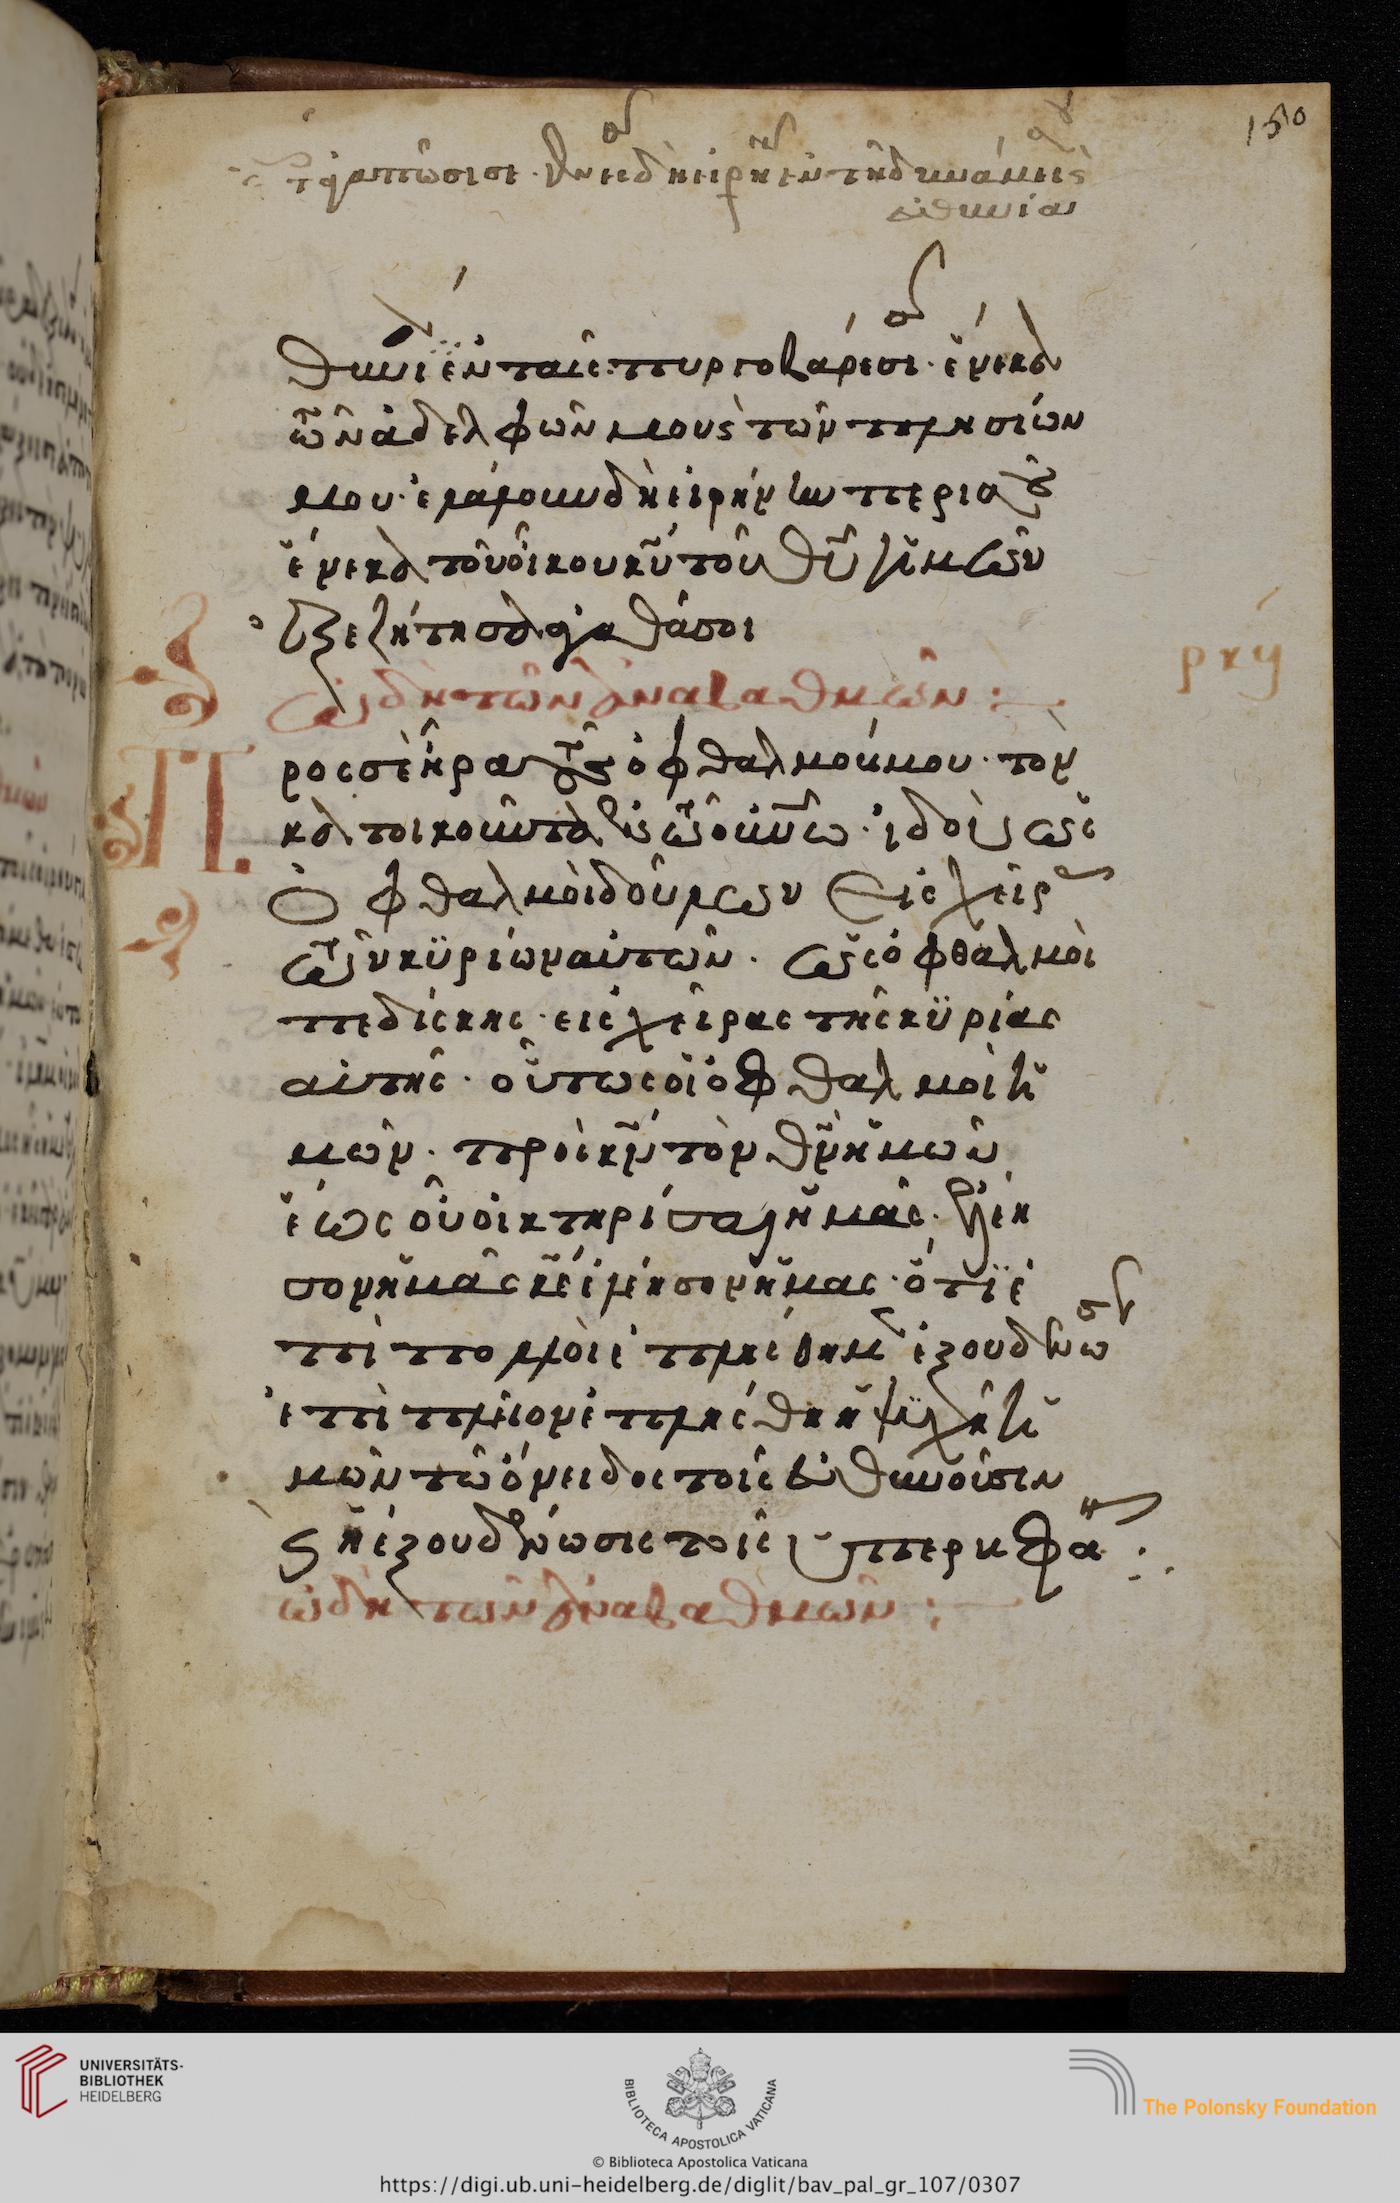 150
τοῖς ἀγαπῶσι σε· γενέσθω δὴ εἰρήνη ἐν τῇ δυνάμει σου ς
εὐθηνία
θηνία ἐν ταῖς πυργοβάρεσί σου· ἕνεκα
τῶν ἀδελφῶν μου ς τῶν πλησίον
μου· ἐλάλουν δὴ εἰρήνην περὶ σοῦ
ἕνεκα τοῦ οἴκου κυ τοῦ θυ ἡμῶν
ἐξεζήτησα ἀγαθά σοι
ρκγ
ὠδὴ τῶν ἀναβαθμῶν :
Προς σὲ ἦρα τοὺς ὀφθαλμούς μου· τὸν
κατοικοῦντα ἐν τῷ οὐνῷ· ἰδοὺ ὡς
ὀφθαλμοὶ δούλων εἰς χεῖρας
τῶν κυρίων αὐτῶν· ὡς ὀφθαλμοὶ
πεδίσκης· εἰς χεῖρας τῆς κυρίας
αὐτῆς· οὕτως οἱ ὀφθαλμοὶ ἡ
μῶν· πρὸς κν τὸν θν ἡμῶν
ἕως οὗ οἰκτηρίσαι ἡμᾶς· ἐλέη
σον ἡμᾶς κε ἐλέησον ἡμᾶς· ὅτι ἐ
πὶ πολλοὶ ἐπλήσθημεν ἐξουδενώσεως
ἐπὶ πλεῖον ἐπλήσθη ἡ ψυχὴ ἡ
μῶν τὸ ὄνειδος τοῖς εὐθηνοῦσιν
ς ἡ ἐξουδένωσις τοῖς ὑπερηφά :
ὠδὴ τῶν ἀναβαθμῶν :
UNIVERSITÄTS-
BIBLIOTHEK
HEIDELBERG
BIBLIOTECA APOSTOLICA VATICANA
The Polonsky Foundation
© Biblioteca Apostolica Vaticana
https://digi.ub.uni-heidelberg.de/diglit/bav_pal_gr_107/0307